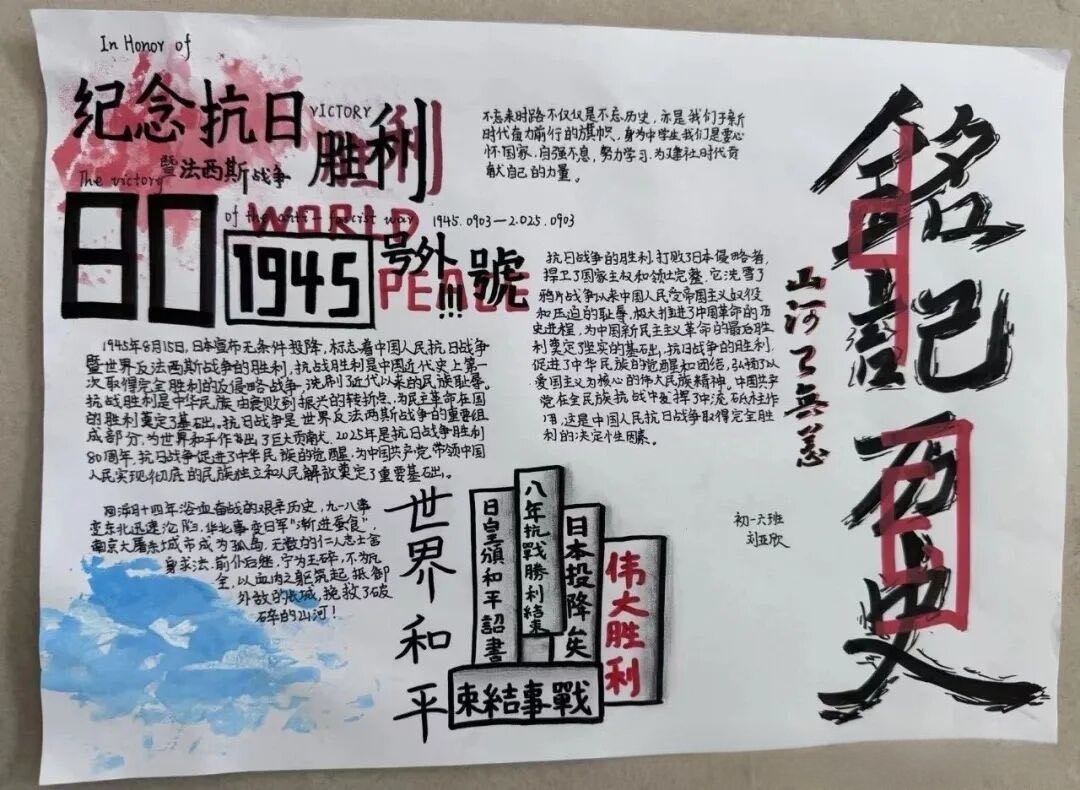 In Honor of
纪念抗日
VICTORY
胜利
暨法西斯战争
The victory
of the anti-fascist war
1945.0903—2.025.0903
WORLD
PEACE
80
1945
号外!!!號
不忘来时路不仅仅是不忘历史,亦是我们于新
时代奋力前行的旗帜,身为中学生我们是要心
怀国家,自强不息,努力学习,为建社时代贡
献自己的力量。
抗日战争的胜利,打败了日本侵略者,
捍卫了国家主权和领土完整,它洗雪了
鸦片战争以来中国人民受帝国主义奴役
和压迫的耻辱,极大推进了中国革命的历
史进程,为中国新民主主义革命的最后胜
利奠定了坚实的基础,抗日战争的胜利,
促进了中华民族的觉醒和团结,弘扬了以
爱国主义为核心的伟大民族精神。中国共产
党在全民族抗战中发挥了中流砥柱作
用,这是中国人民抗日战争取得完全胜
利的决定性因素。
1945年8月15日,日本宣布无条件投降,标志着中国人民抗日战争
暨世界反法西斯战争的胜利,抗战胜利是中国近代史上第一
次取得完全胜利的反侵略战争,洗刷了近代以来的民族耻辱。
抗战胜利是中华民族由衰败到振兴的转折点,为民主革命在国
的胜利奠定了基础。抗日战争是世界反法西斯战争的重要组
成部分,为世界和平作出了巨大贡献,2025年是抗日战争胜利
80周年,抗日战争促进了中华民族的觉醒,为中国共产党带领中国
人民实现彻底的民族独立和人民解放奠定了重要基础。
回海月十四年浴血奋战的艰辛历史,九一八事
变东北迅速沦陷,华北事变日军"渐进蚕食",
南京大屠杀,城市成为孤岛,无数的仁人志士舍
身求法,前仆后继,宁为玉碎,不为瓦
全,以血肉之躯筑起抵御
外敌的长城,挽救了破
碎的山河!
世界和平
日皇頒和平詔書
八年抗戰勝利結束
日本投降矣
伟大胜利
束結事戰
銘記历史
山河已無恙
初一六班
刘亚欣